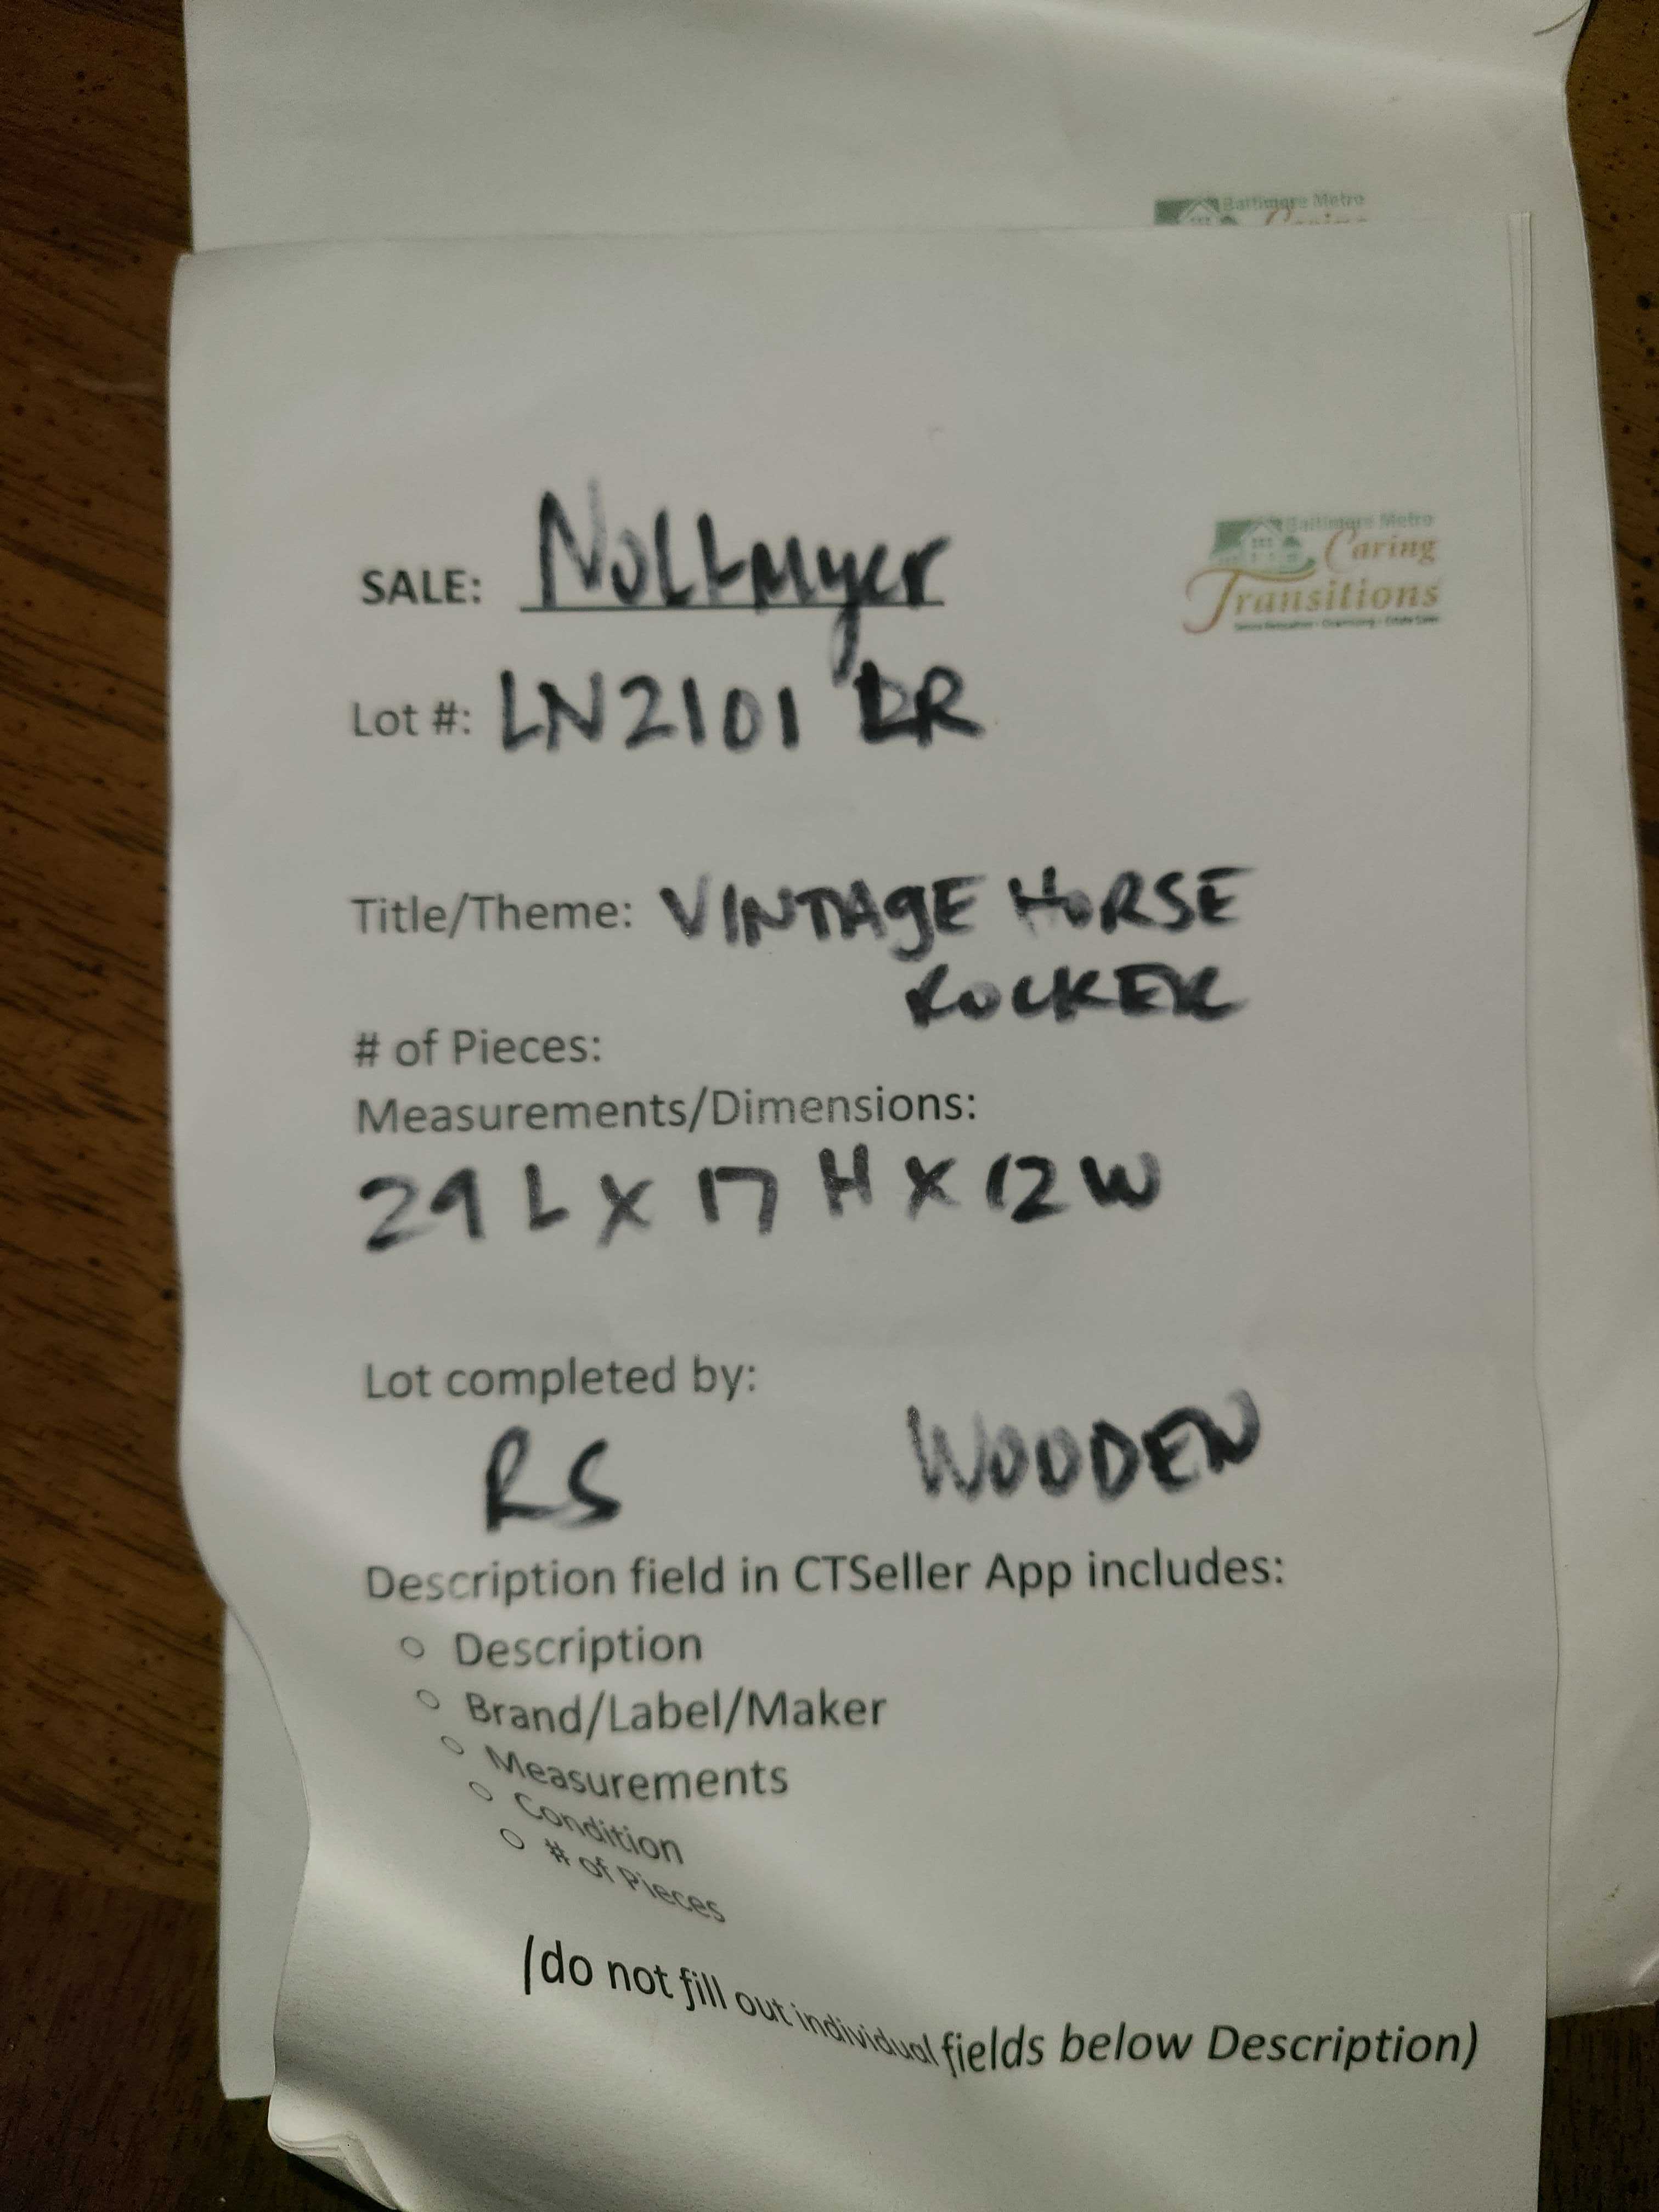 Baltimore Metro
SALE: Noltmyer
Baltimore Metro
Caring
Transitions
Lot #: LN2101 LR
Title/Theme: VINTAGE HORSE
ROCKER
# of Pieces:
Measurements/Dimensions:
29 L X 17 H X 12 W
Lot completed by:
RS WOODEN
Description field in CTSeller App includes:
○ Description
○ Brand/Label/Maker
○ Measurements
○ Condition
○ # of Pieces
(do not fill out individual fields below Description)